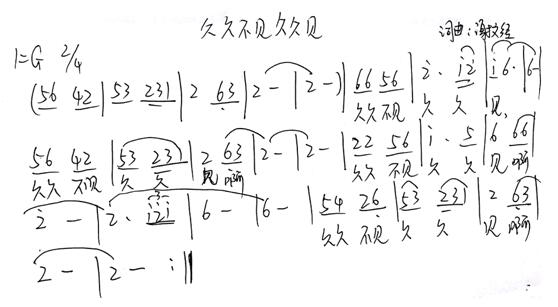 久久不见久久见
词曲:谢文经
1=G 2/4
(56 42 | 53 231 | 2 63 | 2 - | 2 -) | 66 56 | 2̇· 1̇2̇ | 1̇6· | 6 -
久久 不见 久 久 见,
56 42 | 53 231 | 2 63 | 2 - | 2 - | 22 56 | 1̇· 5 | 6 66
久久 不见 久 久 见 啊 久久 不见 久 久 见 啊
2̇ - | 2̇· 1̇2̇1̇ | 6 - | 6 - | 54 26 | 53 231 | 2 63
久久 不见 久 久 见 啊
2 - | 2 - :||